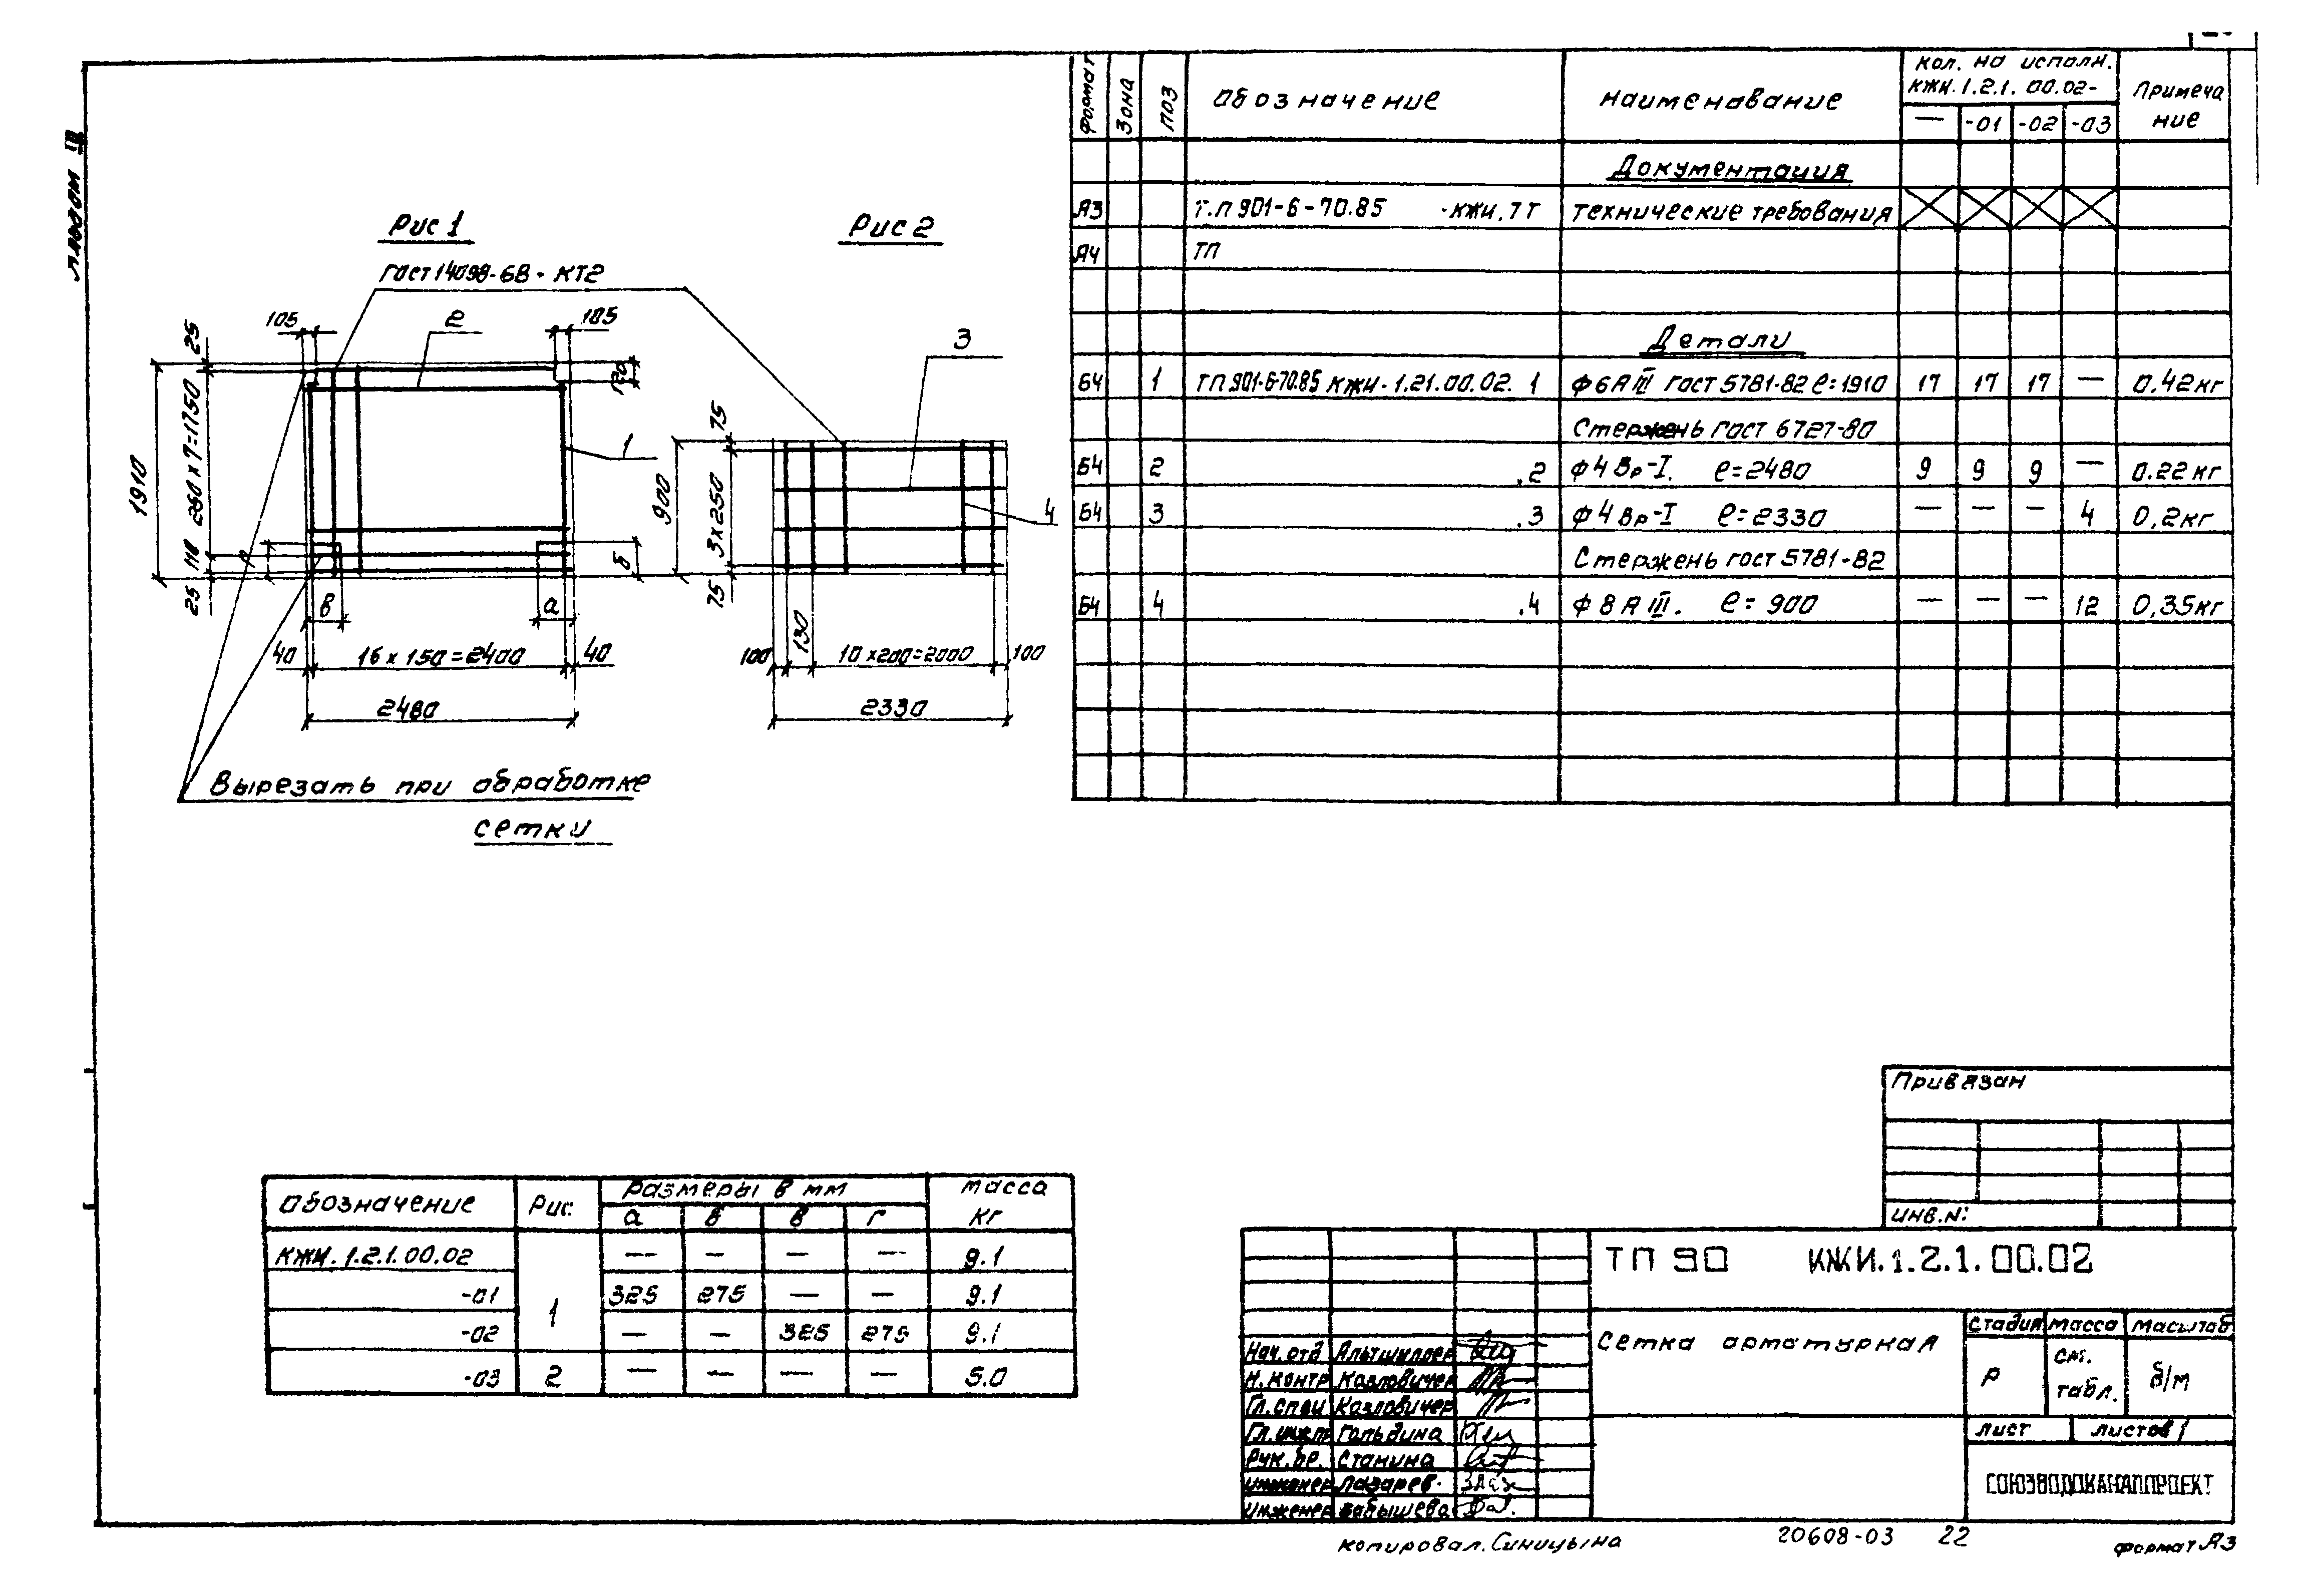 Альбом III
Рис 1
Рис 2
ГОСТ 14098-68 - КТ2
105
2
105
25
120
3
1910
250 х 7=1750
118
25
1
г
в
а
б
40
16 х 150 = 2400
40
2480
75
900
3х250
75
4
100
130
10 х200=2000
100
2330
Вырезать при обработке
сетки
Формат Зона Поз Обозначение Наименование Кол. на исполн. КЖИ.1.2.1.00.02- Примеча
ние
— -01 -02 -03
Документация
А3 Т.П 901-6-70.85 -КЖИ.ТТ Технические требования
А4 ТП
Детали
Б4 1 ТП 901-6-70.85 КЖИ-1.21.00.02. 1 Ф6АIII ГОСТ 5781-82 ℓ=1910 17 17 17 — 0.42кг
Стержень ГОСТ 6727-80
Б4 2 .2 Ф4Вр-I. ℓ=2480 9 9 9 — 0.22кг
Б4 3 .3 Ф4Вр-I ℓ=2330 — — — 4 0,2кг
Стержень ГОСТ 5781-82
Б4 4 .4 Ф8АIII. ℓ= 900 — — — 12 0,35кг
Обозначение Рис. Размеры в мм Масса
кг
а б в г
КЖИ.1.2.1.00.02 1 — — — — 9.1
-01 325 275 — — 9.1
-02 — — 325 275 9.1
-03 2 — — — — 5.0
Привязан
инв.N:
ТП 90 КЖИ.1.2.1.00.02
Сетка арматурная
Стадия Масса Масштаб
Р см.
табл. б/м
Лист Листов 1
СОЮЗВОДОКАНАЛПРОЕКТ
Нач.отд Альтшуллер
Н.контр Козловичер
Гл.спец Козловичер
Гл.инж.п Гольдина
Рук.бр. Станина
Инженер Лазарев
Инженер Бабышева
Копировал.Синицына 20608-03 22 формат А3